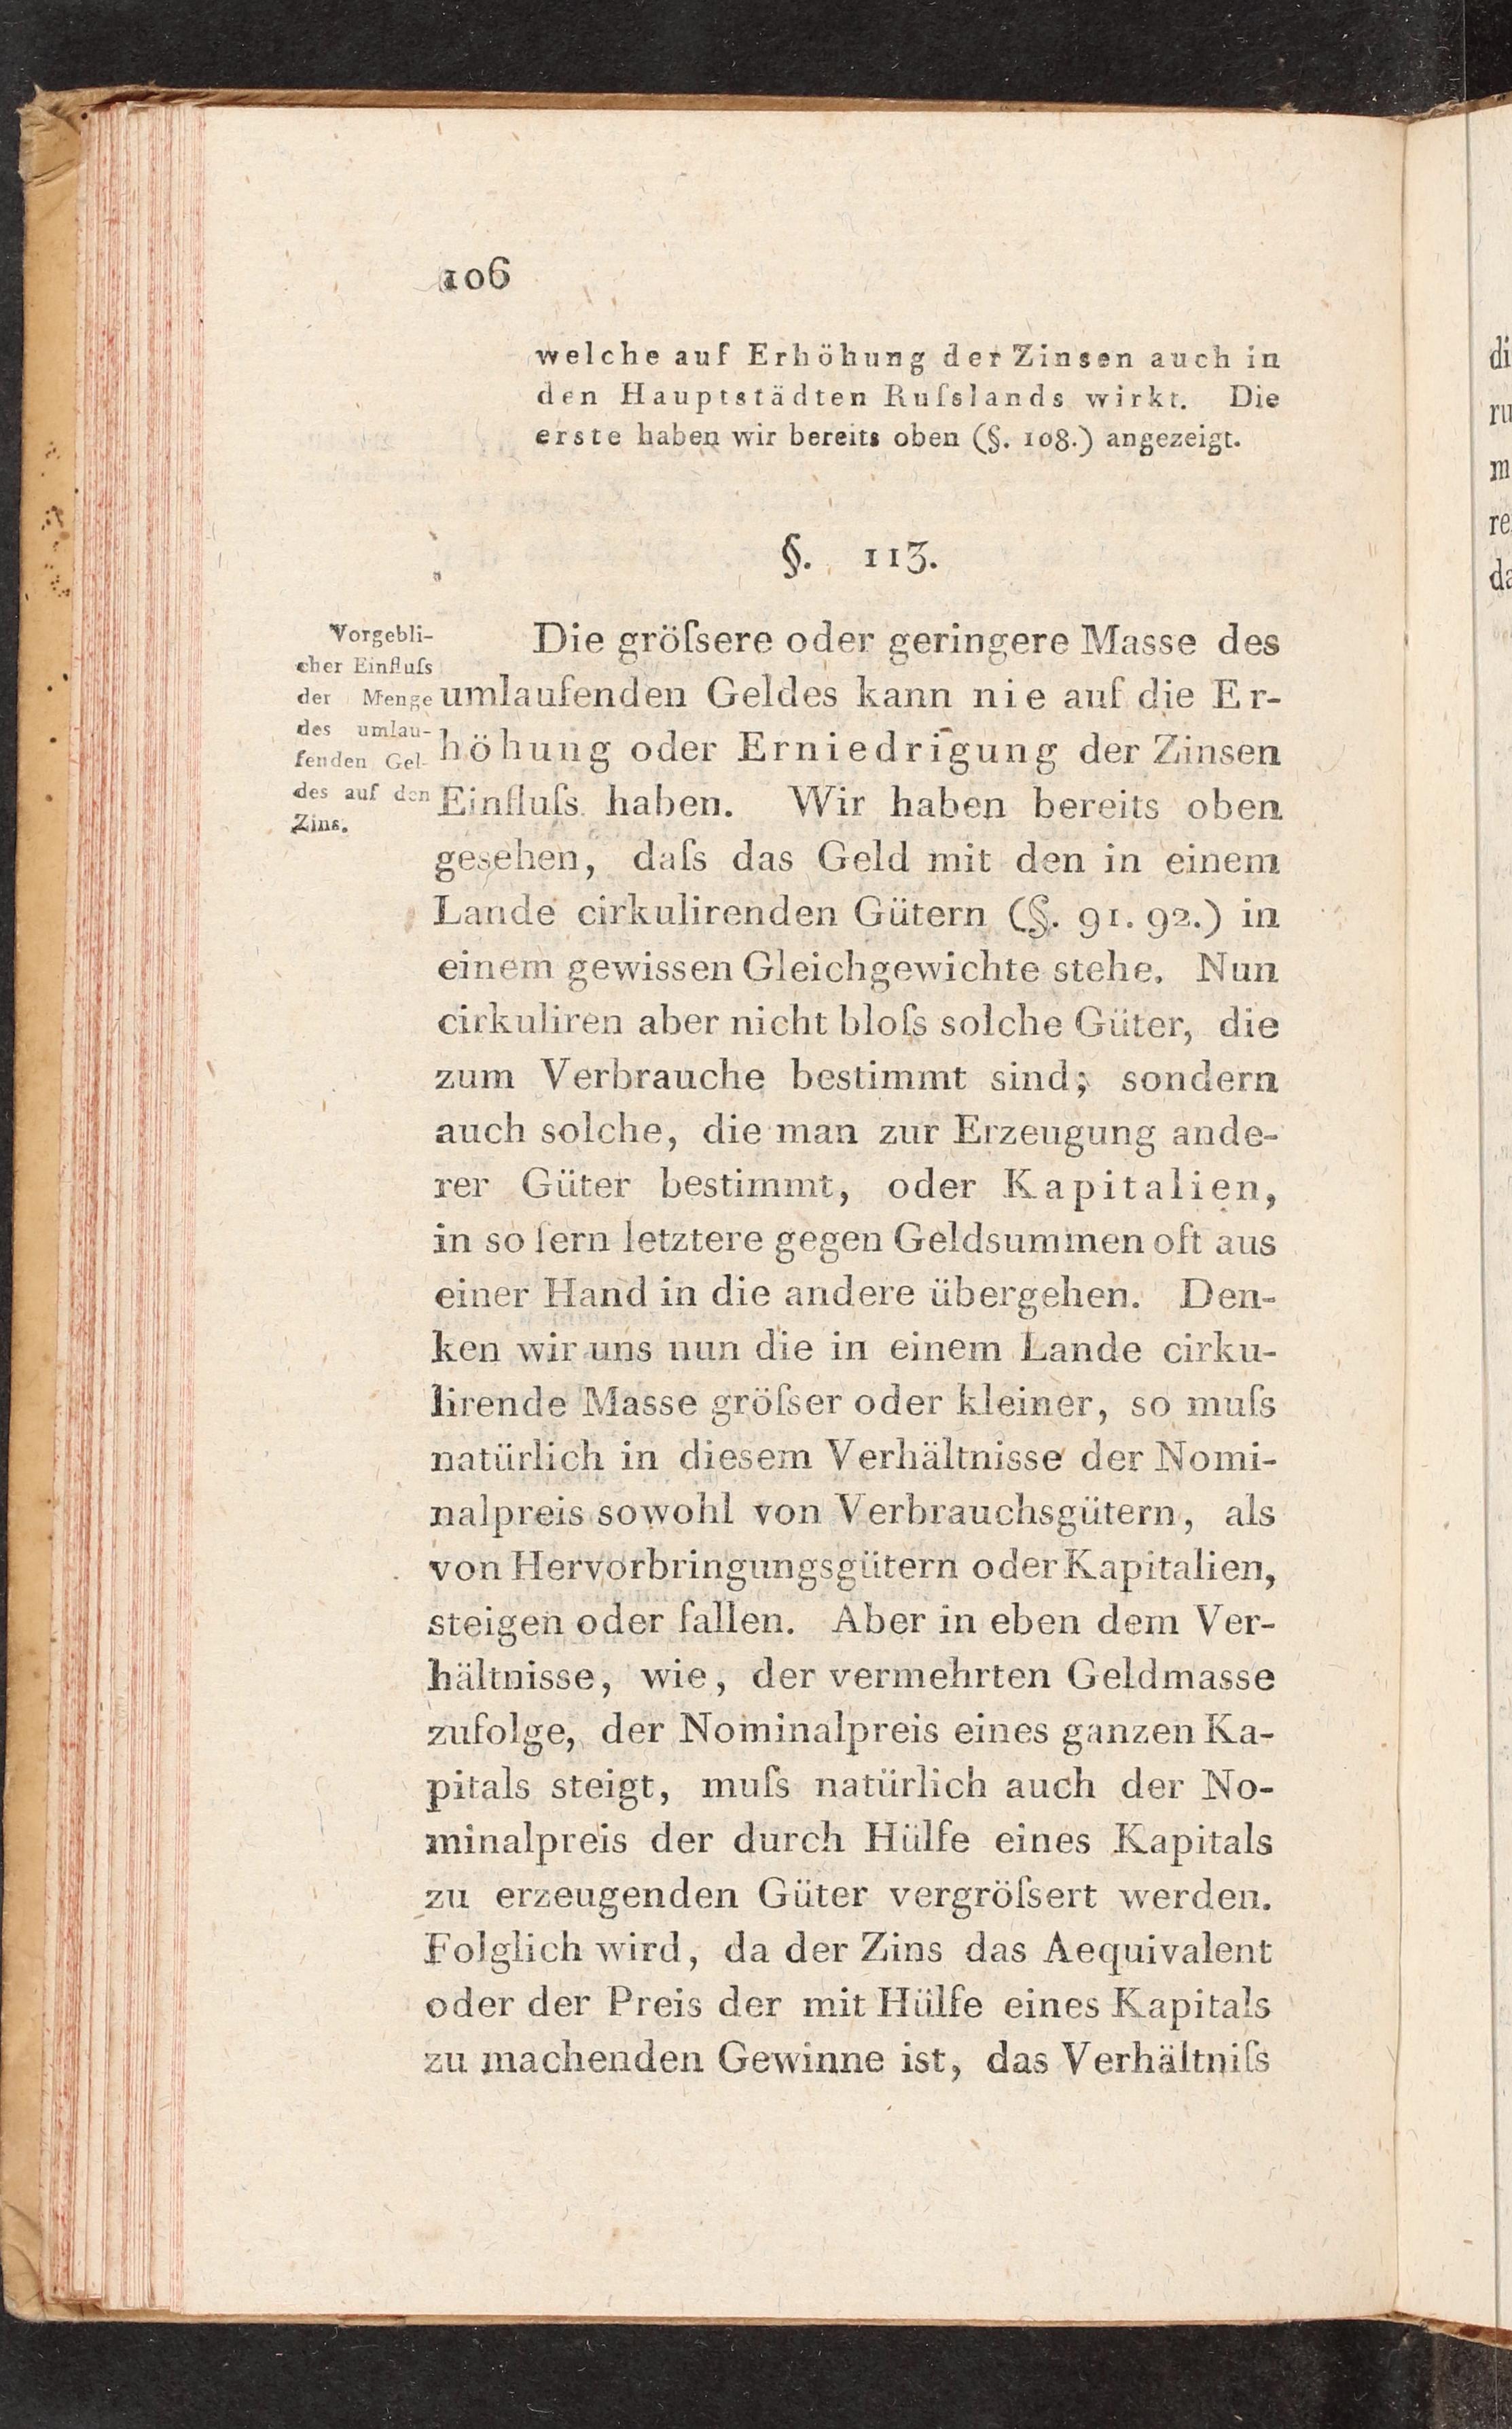 106
welche auf Erhöhung der Zinsen auch in
den Hauptstädten Ruſslands wirkt. Die
erste haben wir bereits oben (§. 108.) angezeigt.
§. 113.
Vorgebli-
cher Einfluſs
der Menge
des umlau-
fenden Gel-
des auf den
Zins.
Die gröſsere oder geringere Masse des
umlaufenden Geldes kann nie auf die Er-
höhung oder Erniedrigung der Zinsen
Einfluſs haben. Wir haben bereits oben
gesehen, daſs das Geld mit den in einem
Lande cirkulirenden Gütern (§. 91. 92.) in
einem gewissen Gleichgewichte stehe. Nun
cirkuliren aber nicht bloſs solche Güter, die
zum Verbrauche bestimmt sind; sondern
auch solche, die man zur Erzeugung ande-
rer Güter bestimmt, oder Kapitalien,
in so fern letztere gegen Geldsummen oft aus
einer Hand in die andere übergehen. Den-
ken wir uns nun die in einem Lande cirku-
lirende Masse gröſser oder kleiner, so muſs
natürlich in diesem Verhältnisse der Nomi-
nalpreis sowohl von Verbrauchsgütern, als
von Hervorbringungsgütern oder Kapitalien,
steigen oder fallen. Aber in eben dem Ver-
hältnisse, wie, der vermehrten Geldmasse
zufolge, der Nominalpreis eines ganzen Ka-
pitals steigt, muſs natürlich auch der No-
minalpreis der durch Hülfe eines Kapitals
zu erzeugenden Güter vergröſsert werden.
Folglich wird, da der Zins das Aequivalent
oder der Preis der mit Hülfe eines Kapitals
zu machenden Gewinne ist, das Verhältniſs
di
ru
m
re
da